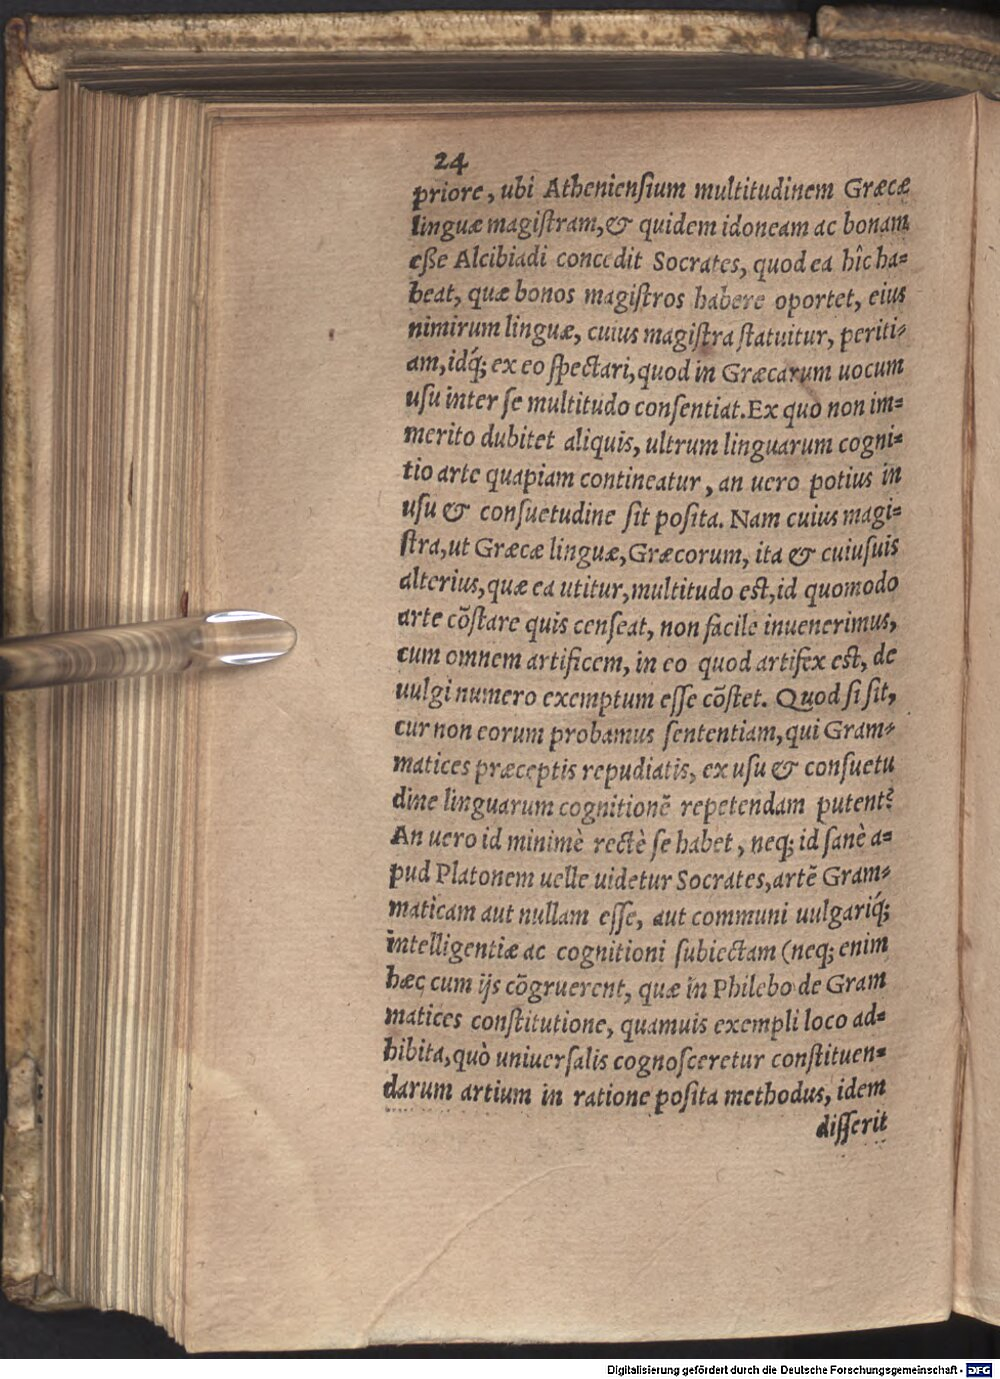 24
priore, ubi Atheniensium multitudinem Græcæ
linguæ magiſtram, & quidem idoneam ac bonam
eſſe Alcibiadi concedit Socrates, quod ea hîc ha=
beat, quæ bonos magiſtros habere oportet, eius
nimirum linguæ, cuius magiſtra ſtatuitur, periti=
am, idq́; ex eo ſpectari, quod in Græcarum uocum
uſu inter ſe multitudo conſentiat. Ex quo non im=
merito dubitet aliquis, ultrum linguarum cogni=
tio arte quapiam contineatur, an uero potius in
uſu & conſuetudine ſit poſita. Nam cuius magi=
ſtra, ut Græcæ linguæ, Græcorum, ita & cuiuſuis
alterius, quæ ea utitur, multitudo eſt, id quomodo
arte cõſtare quis cenſeat, non facile inuenerimus,
cum omnem artificem, in eo quod artifex eſt, de
uulgi numero exemptum eſſe cõſtet. Quod ſi ſit,
cur non eorum probamus ſententiam, qui Gram=
matices præceptis repudiatis, ex uſu & conſuetu
dine linguarum cognitionẽ repetendam putent?
An uero id minimè rectè ſe habet, neq; id ſanè a=
pud Platonem uelle uidetur Socrates, artẽ Gram=
maticam aut nullam eſſe, aut communi uulgariq́;
intelligentiæ ac cognitioni ſubiectam (neq; enim
hæc cum ijs cõgruerent, quæ in Philebo de Gram
matices conſtitutione, quamuis exempli loco ad=
hibita, quò uniuerſalis cognoſceretur conſtituen=
darum artium in ratione poſita methodus, idem
differit
Digitalisierung gefördert durch die Deutsche Forschungsgemeinschaft - DFG